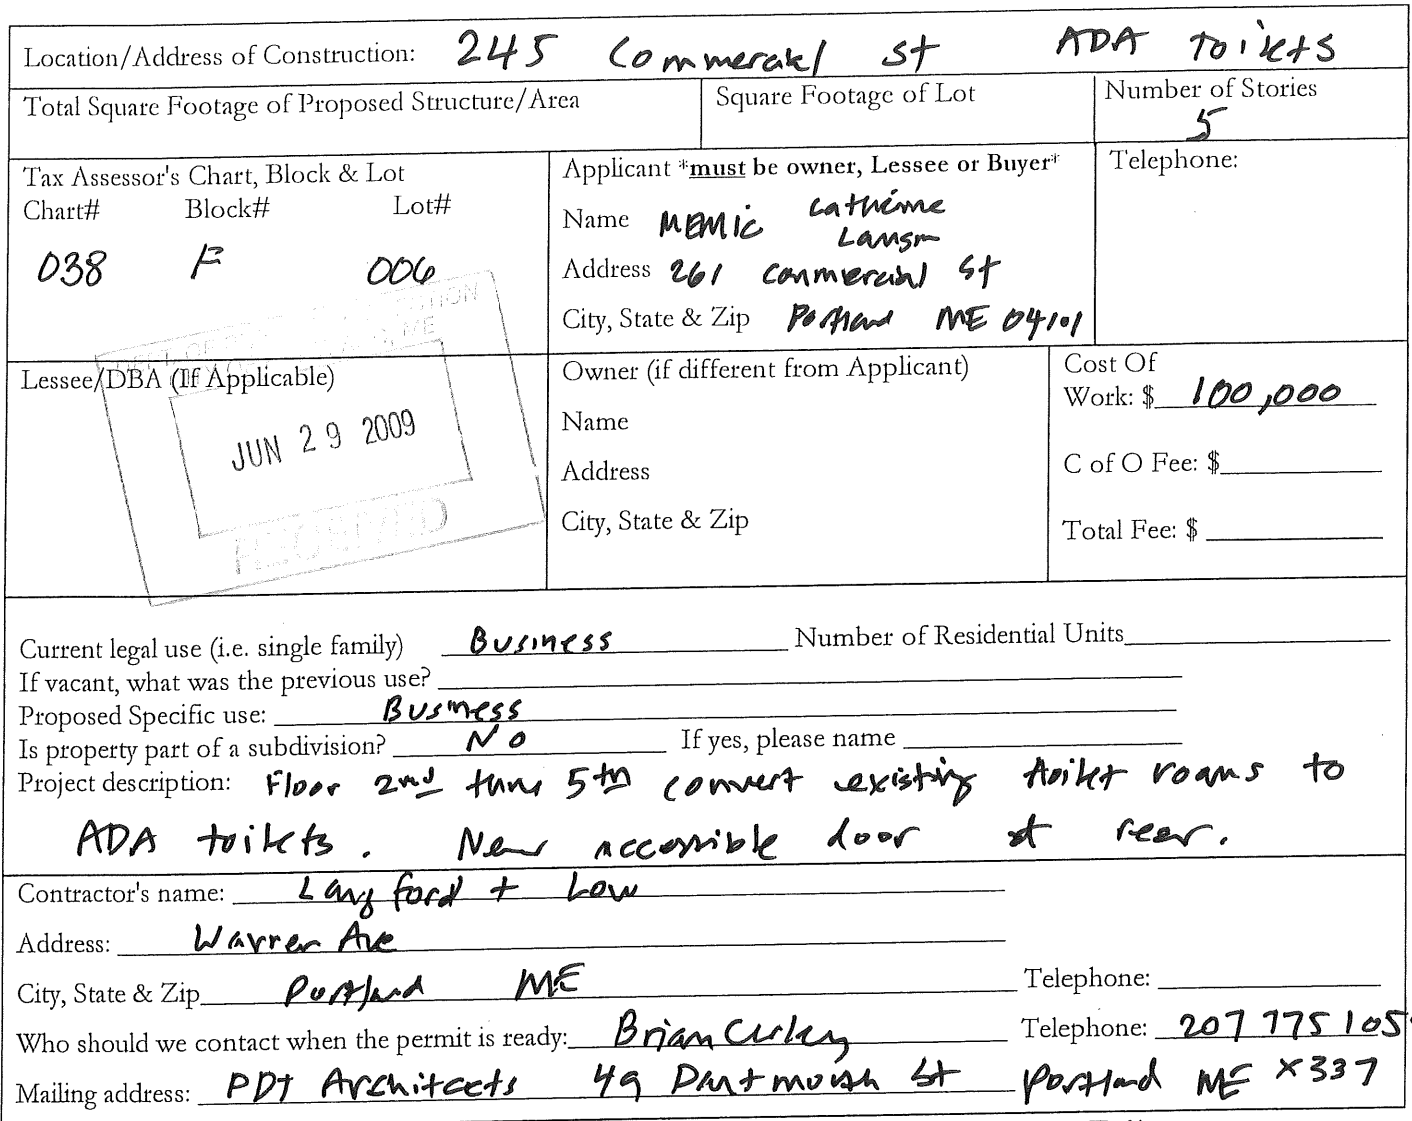 Location/Address of Construction: 245 Commercial St ADA toilets
Total Square Footage of Proposed Structure/Area
Square Footage of Lot
Number of Stories
5
Tax Assessor's Chart, Block & Lot
Chart# Block# Lot#
038 F 006
Applicant *must be owner, Lessee or Buyer*
Name MEMIC Catherine
Address 261 Commercial St
City, State & Zip Portland ME 04101
Telephone:
Lessee/DBA (If Applicable)
JUN 29 2009
RECEIVED
Owner (if different from Applicant)
Name
Address
City, State & Zip
Cost Of
Work: $ 100,000
C of O Fee: $
Total Fee: $
Current legal use (i.e. single family) Business Number of Residential Units
If vacant, what was the previous use?
Proposed Specific use: Business
Is property part of a subdivision? No If yes, please name
Project description: Floor 2nd thru 5th convert existing toilet rooms to
ADA toilets. New accessible door at rear.
Contractor's name: Langford + Low
Address: Warren Ave
City, State & Zip Portland ME Telephone:
Who should we contact when the permit is ready: Brian Curley Telephone: 207 775 105
Mailing address: PDT Architects 49 Dartmouth St Portland ME x337